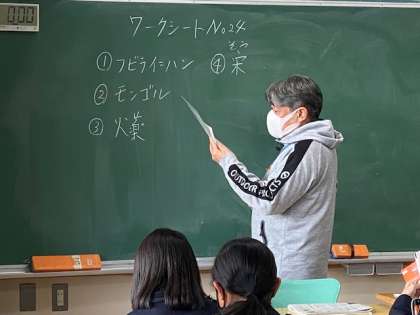 0:00
ワークシートNo.24
①フビライ=ハン
④宋
そう
②モンゴル
③火薬
OUTDOOR PRODUCTS